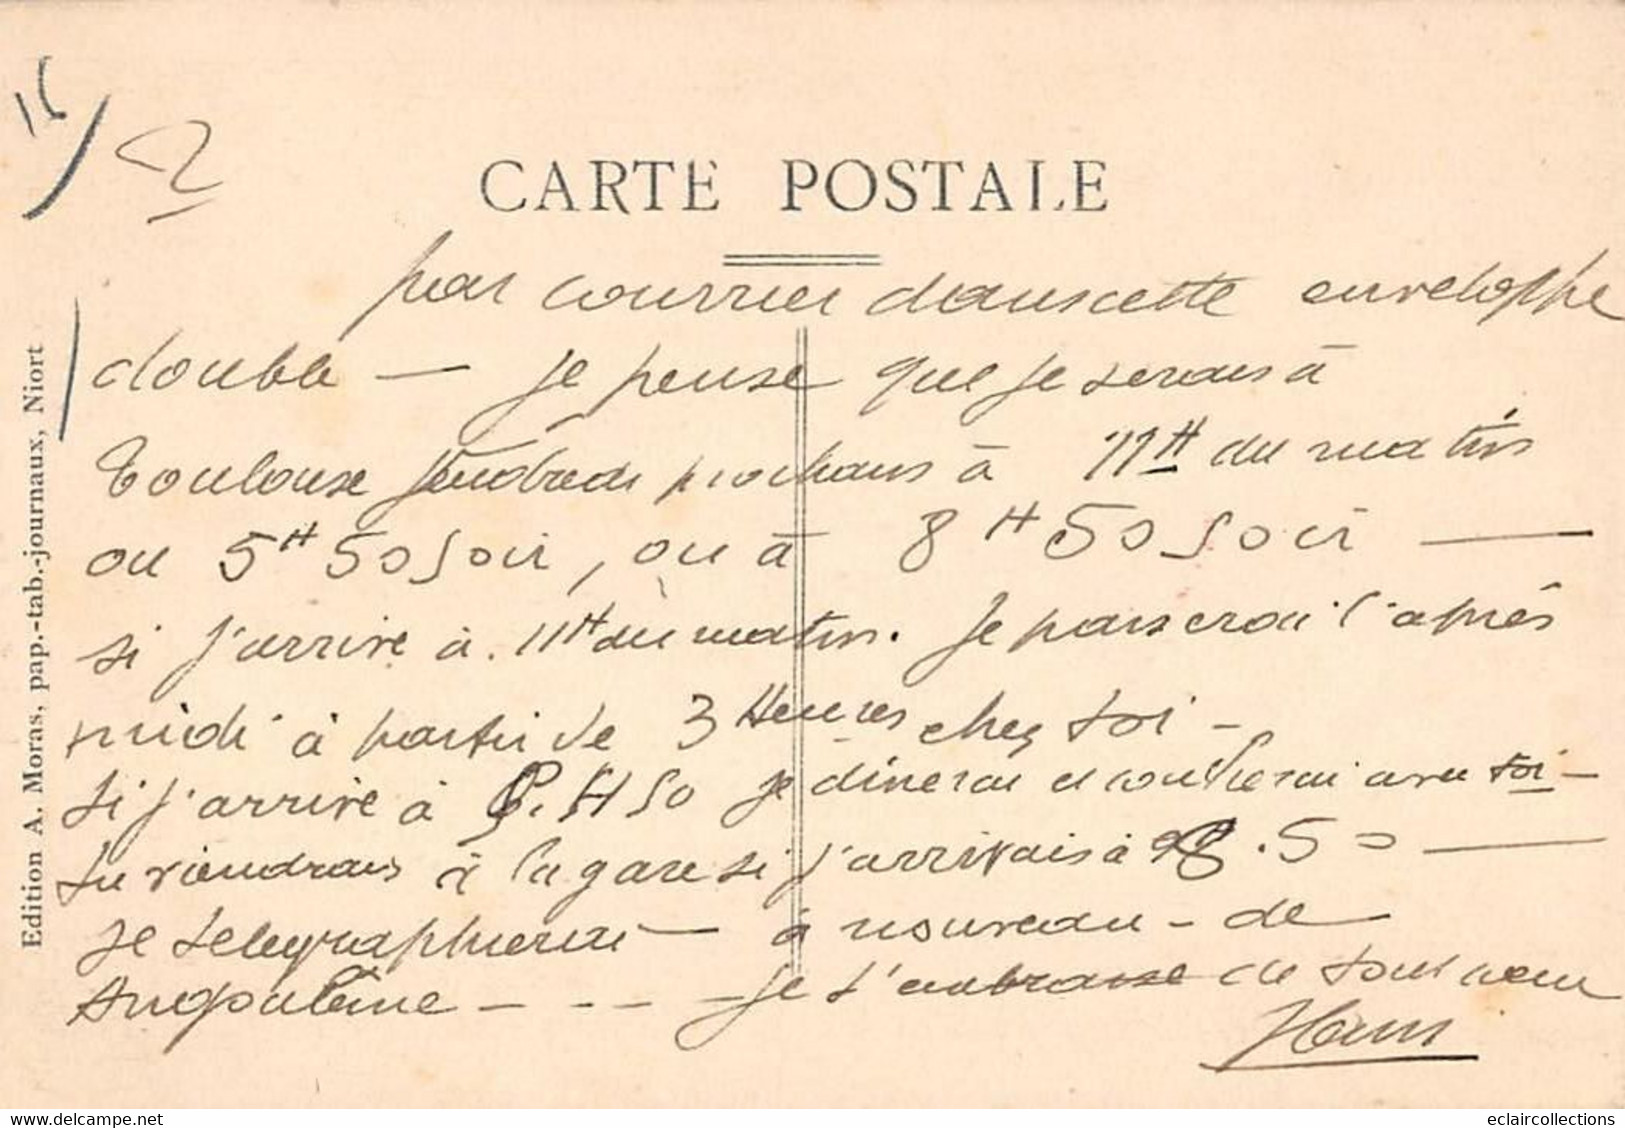 15/
2
CARTE POSTALE
par courrier dans cette enveloppe
double — je pense que je serais à
Toulouse vendredi prochain à 11H du matin
ou 5H 50 soir, ou à 8H 50 soir —
si j'arrive à 11H du matin. Je passerai l'après
midi à partir de 3 Heures chez toi -
si j'arrive à 5.H 50 je dinerai et coucherai avec toi -
tu viendrais à la gare si j'arrivais à 8.50 —
je telegraphierai — à nouveau - de
Angoulême - - - - je t'embrasse de tout coeur
Edition A. Moras, pap.-tab.-journaux, Niort
eclaircollections